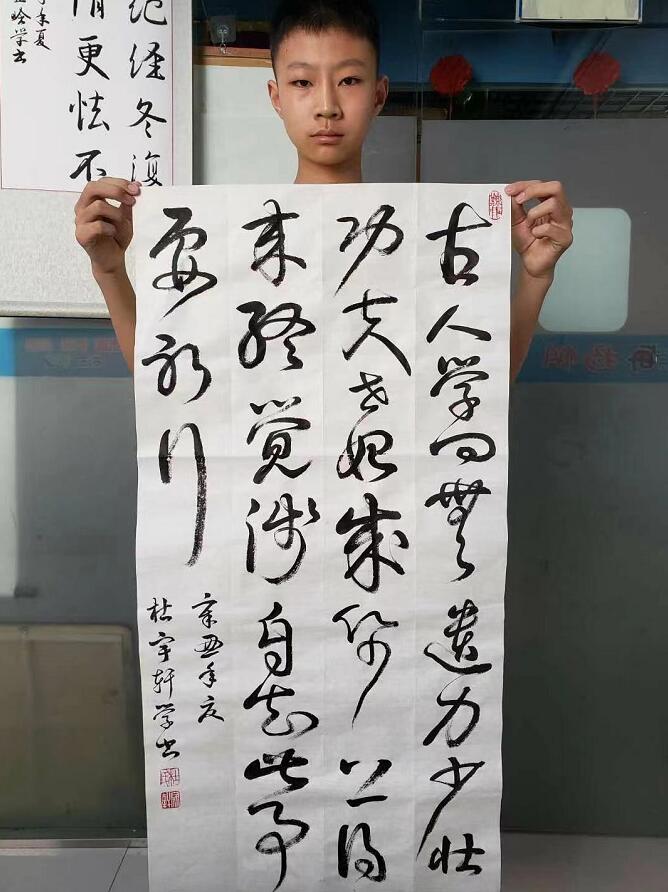 古人学问無遗力少壮
功夫老始成纸上得
来终觉浅自知此事
要躬行
辛丑年夏
杜宇轩学书
绝经冬復
情更怯不
年夏
学书